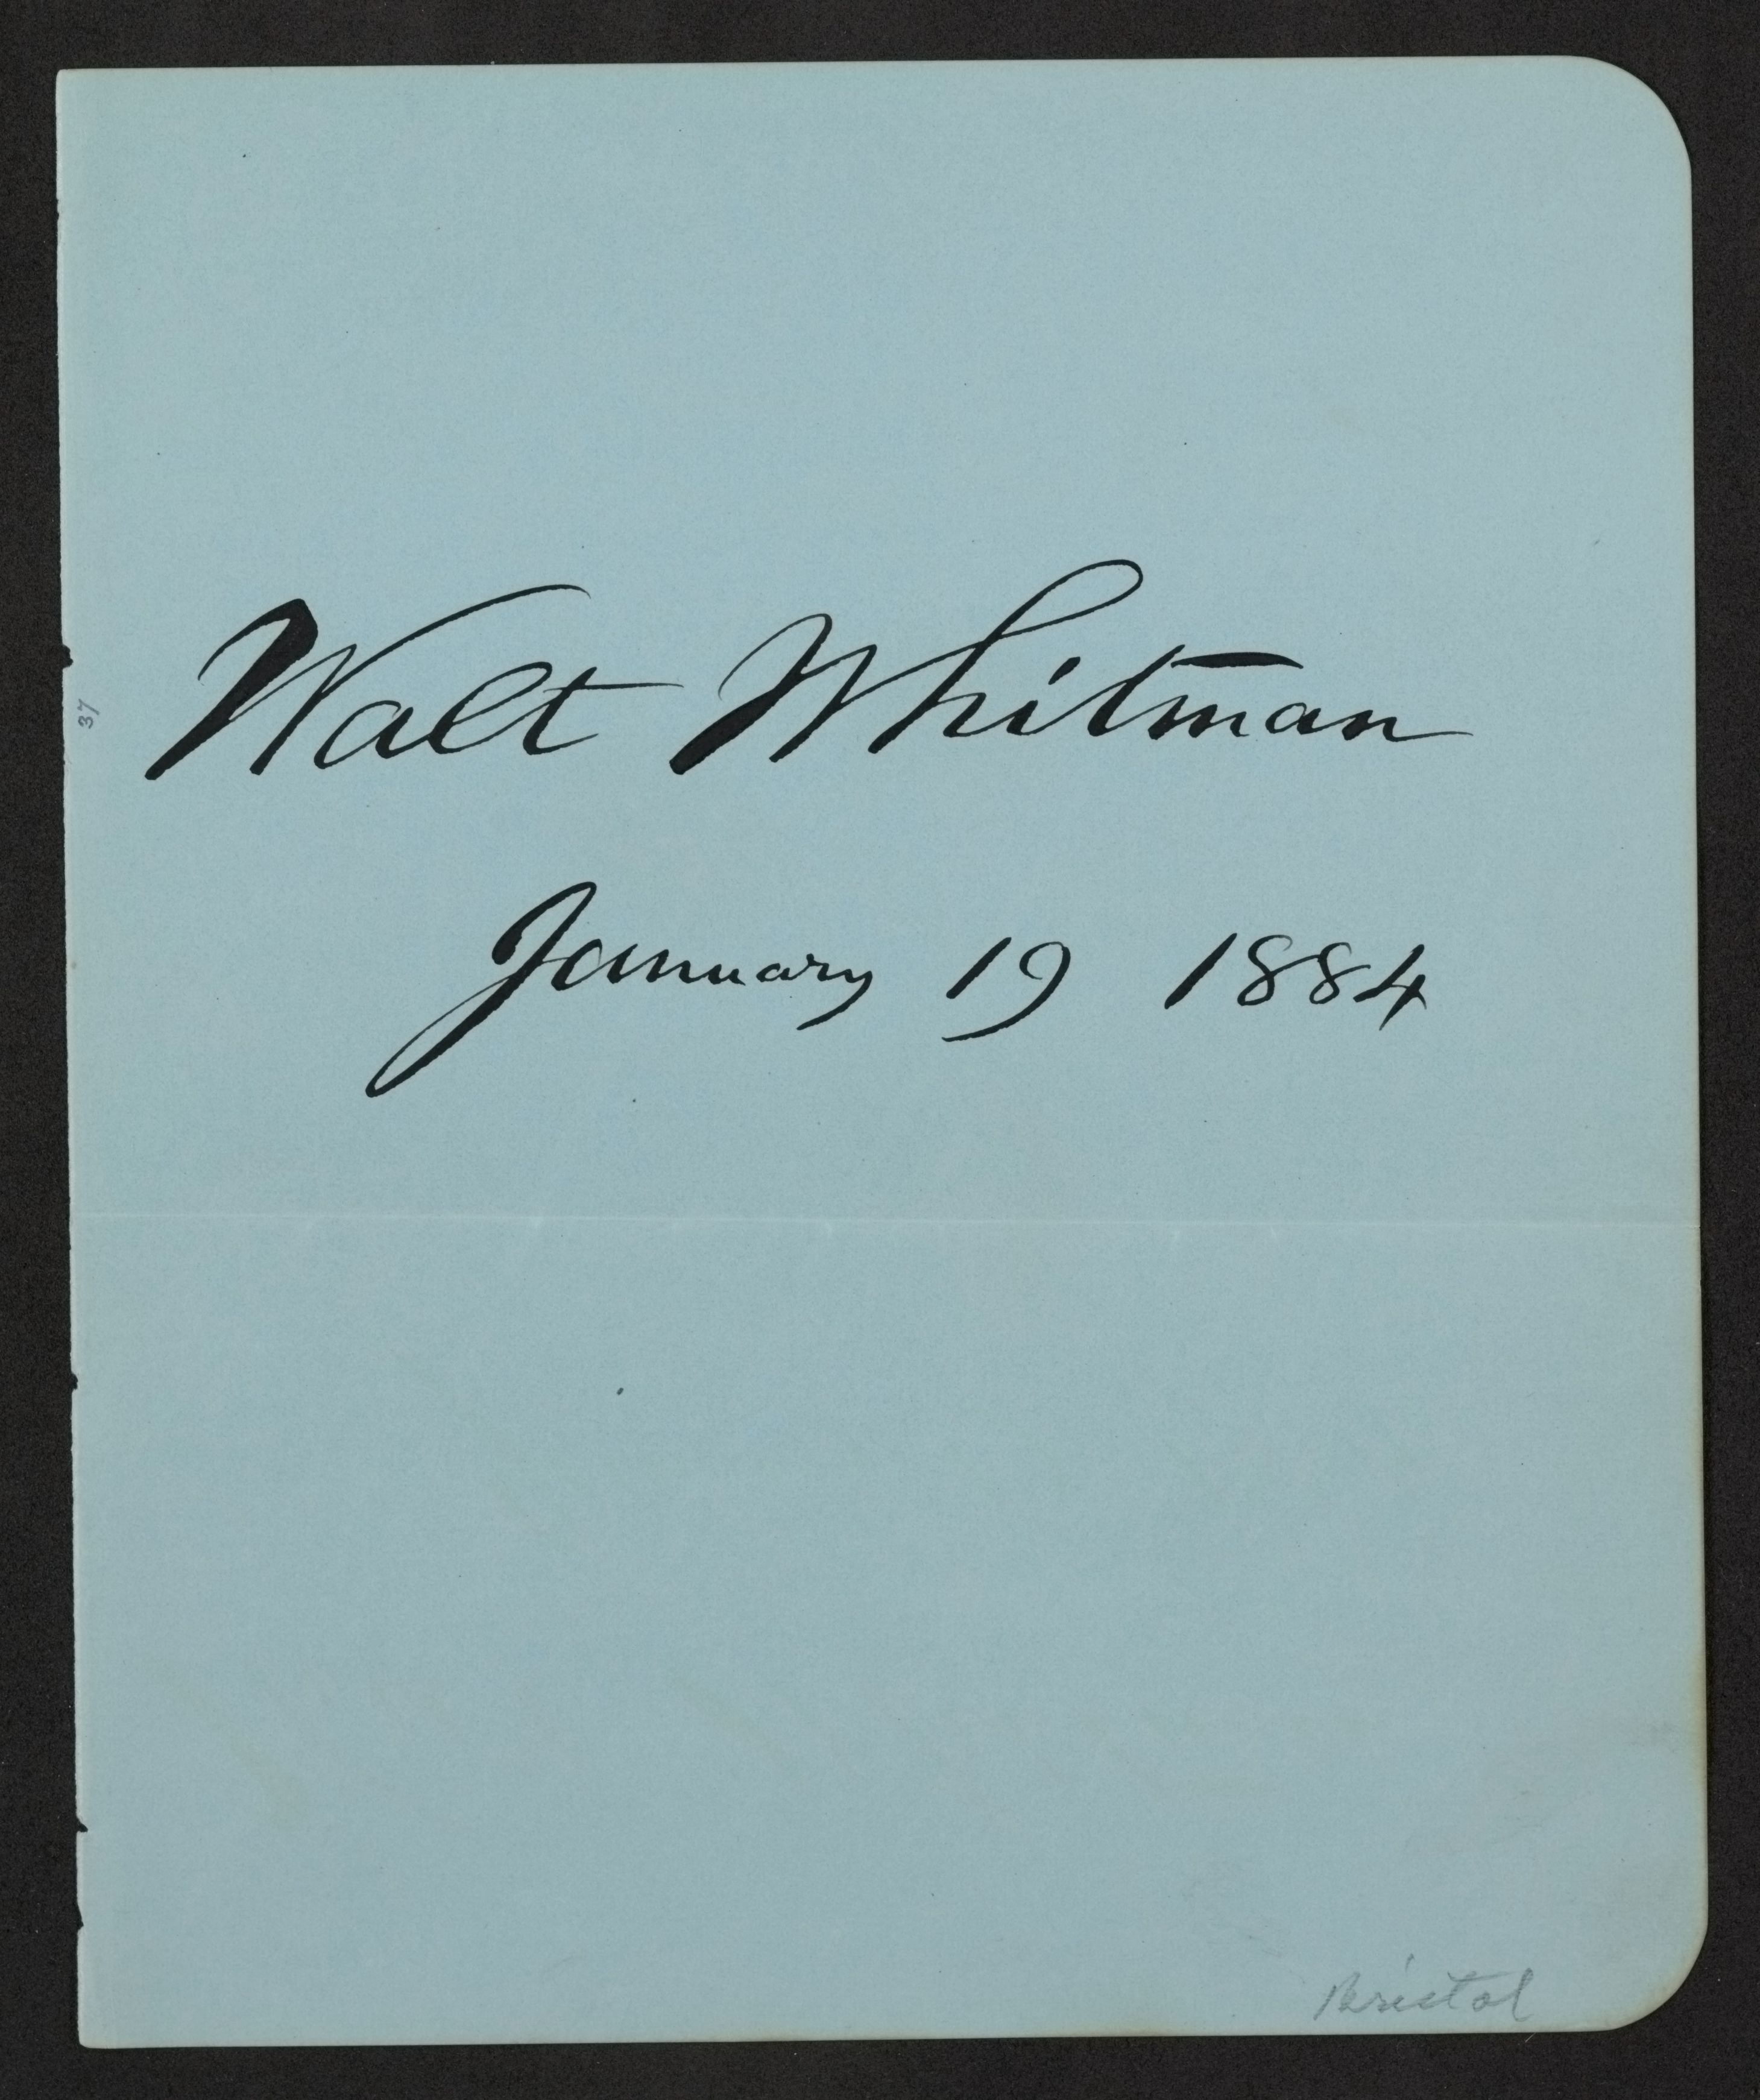 Walt Whitman
37
January 19 1884
Bristol